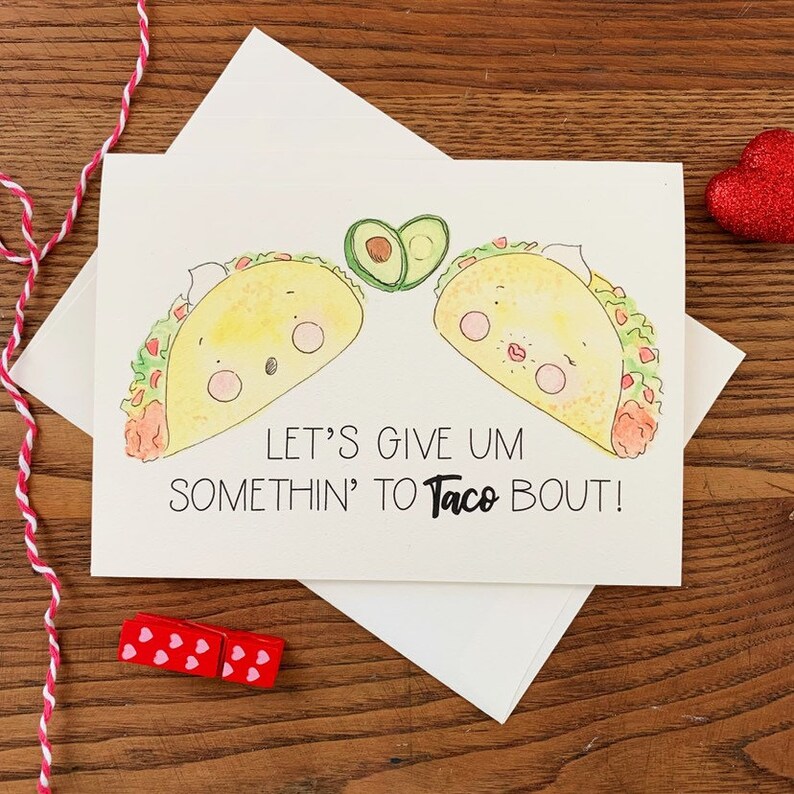 LET'S GIVE UM
SOMETHIN' TO Taco BOUT!